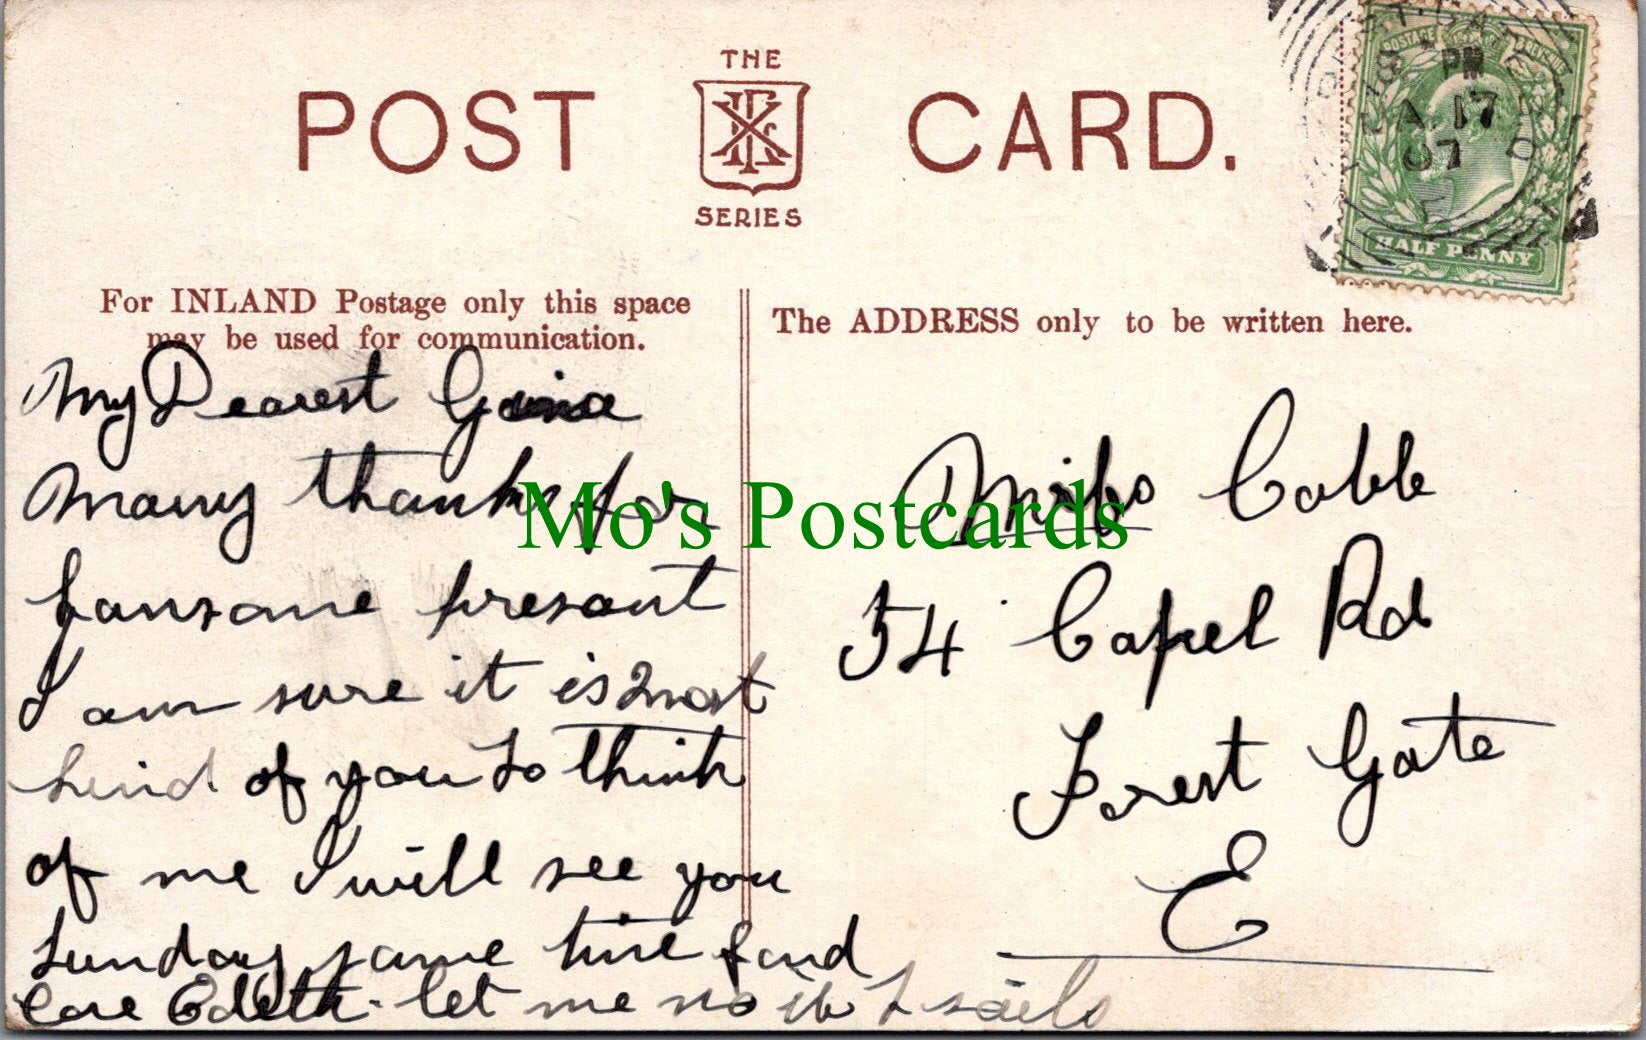 THE
POST CARD.
SERIES
POSTAGE
PM
17
07
HALF PENNY
For INLAND Postage only this space
may be used for communication.
The ADDRESS only to be written here.
My Dearest
Many thanks for
hansome presant
I am sure it is most
kind of you to think
of me I will see you
Sunday same time fond
love Edith. let me no if
Miss Cobb
54 Capel Rd
Forest Gate
E
Mo's Postcards